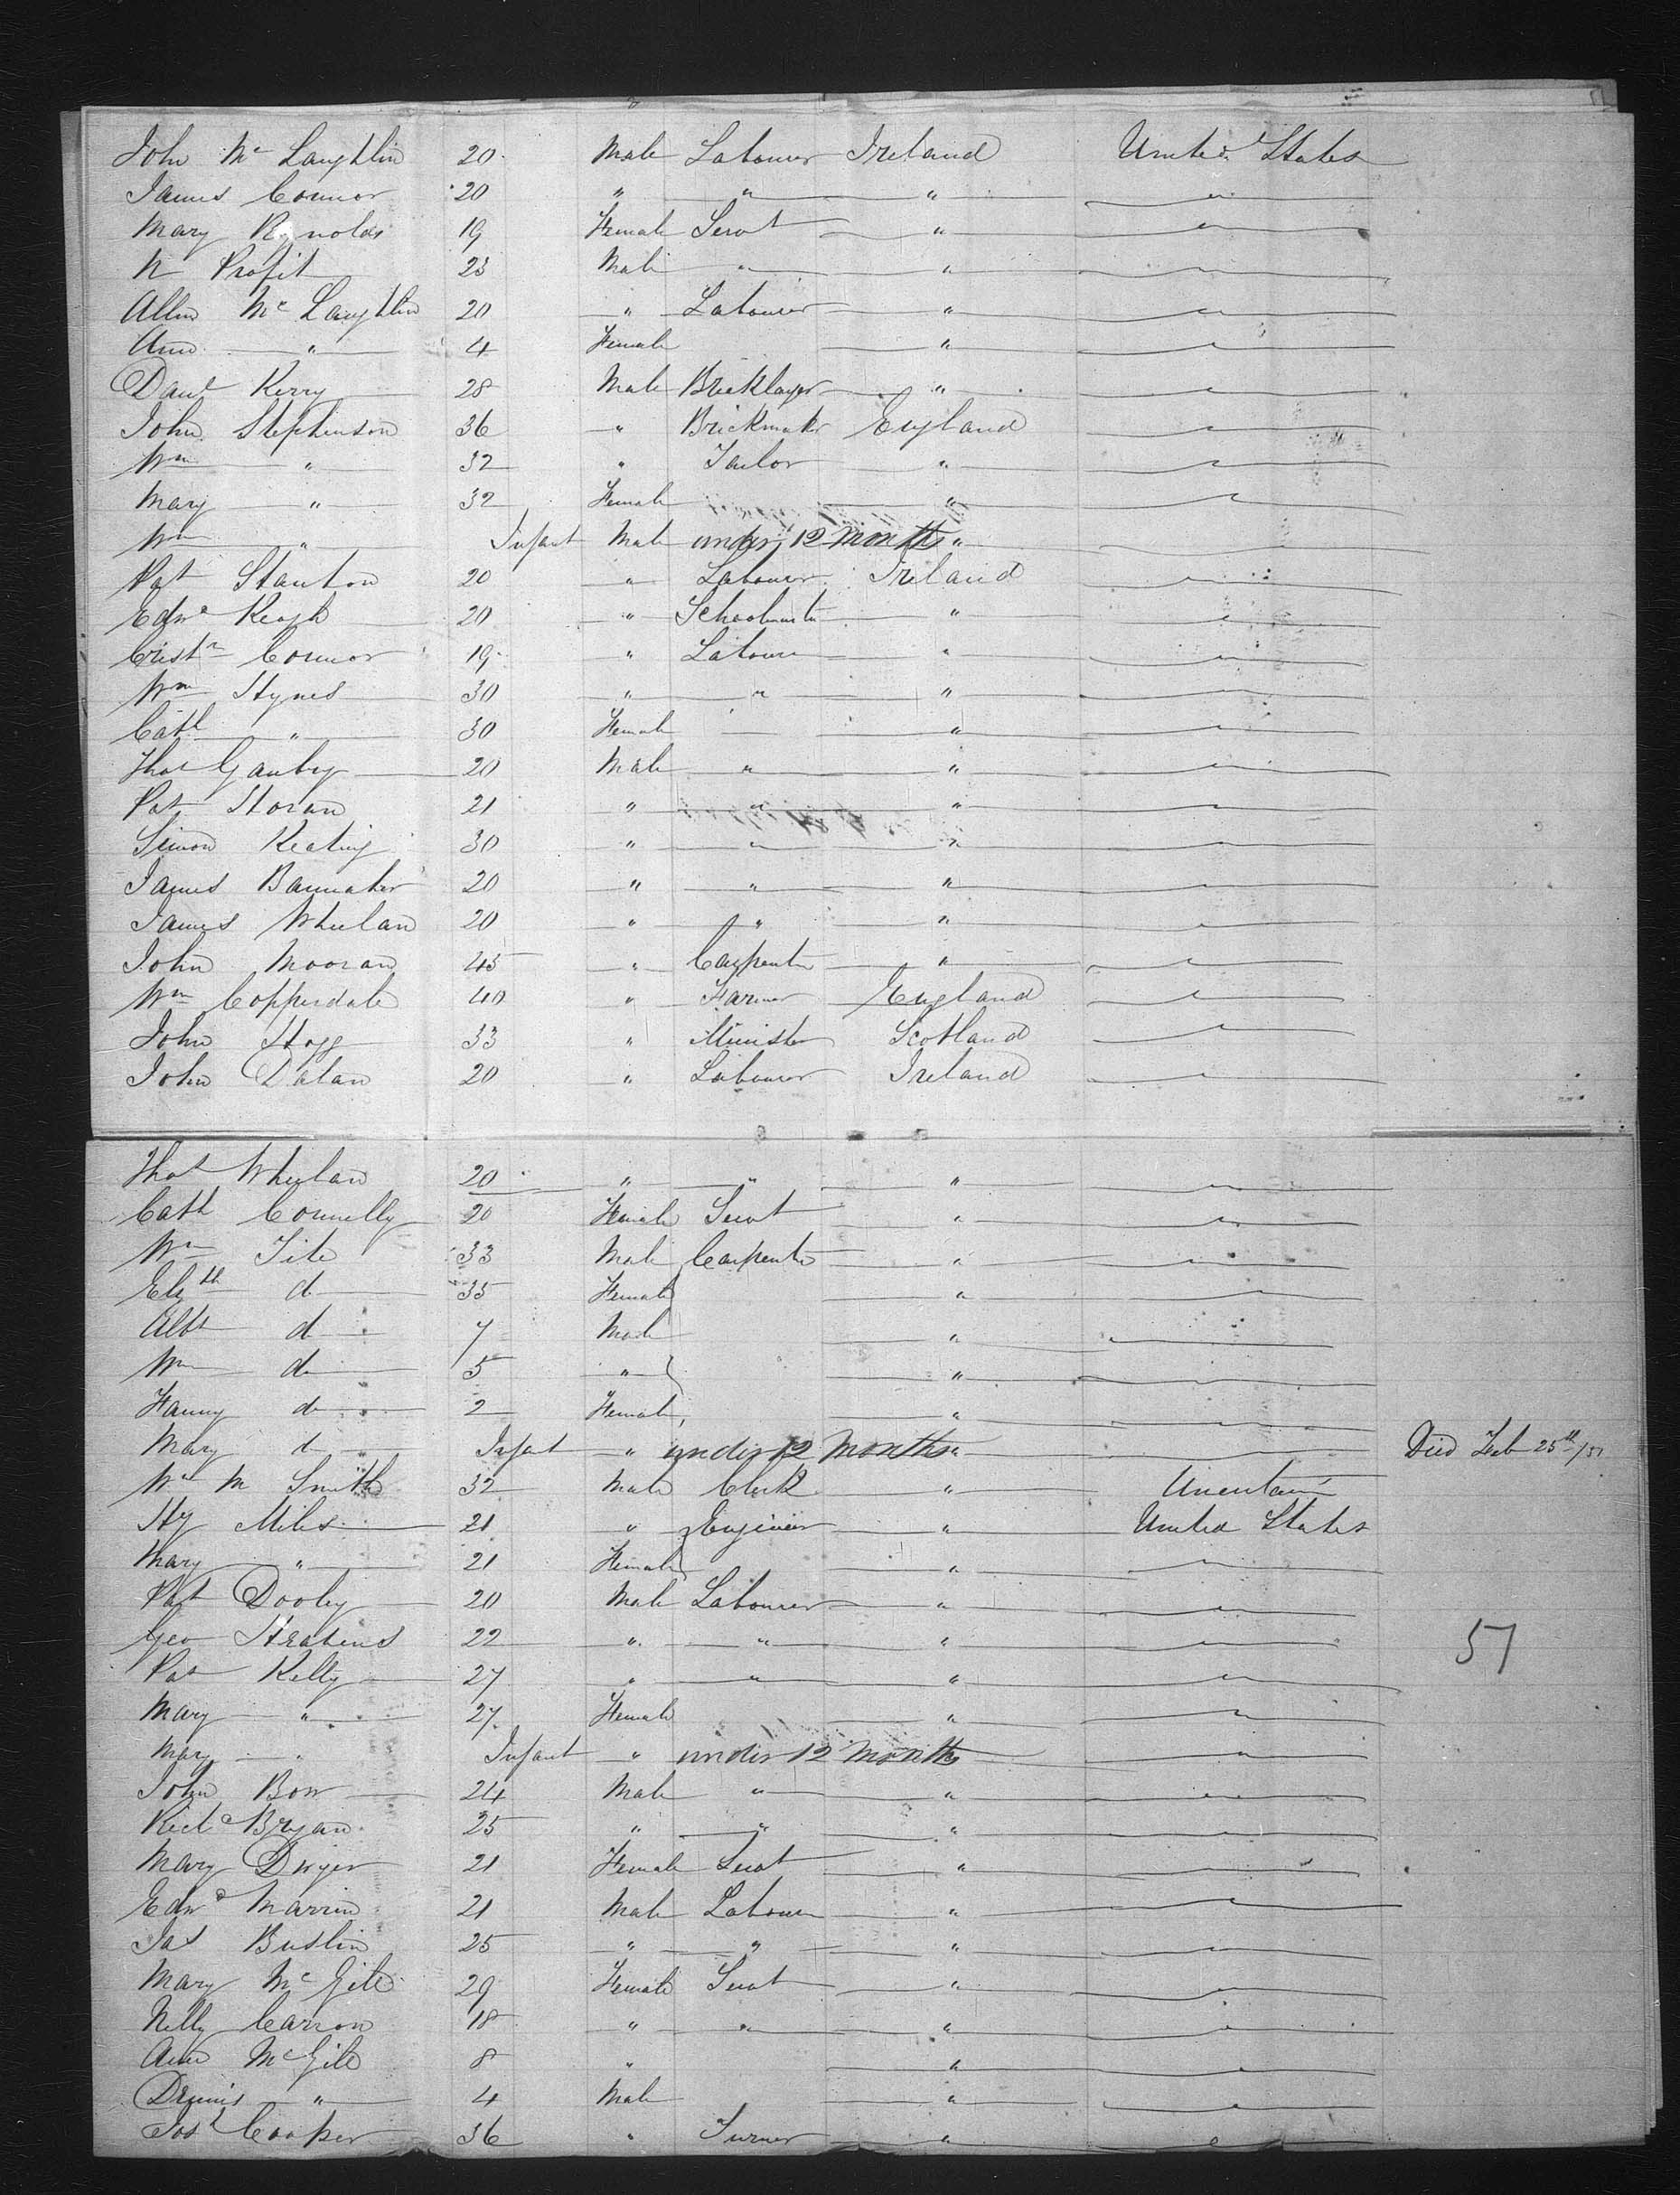 John Mc Laughlin 20 Male Labourer Ireland United States
James Connor 20 " " " "
Mary Reynolds 19 Female Servt " "
N Profit 23 Male " " "
Allen Mc Laughlin 20 " Labourer " "
Ann " 4 Female " "
Danl Kerry 28 Male Bricklayer " "
John Stephenson 36 " Brickmaker England "
Wm " 32 " Tailor " "
Mary " 32 Female " "
Wm " Infant Male under 12 Months "
Pat Stanton 20 " Labourer Ireland "
Edwd Keogh 20 " Schoolmaster " "
Cristr Connor 19 " Labourer " "
Wm Hynes 30 " " " "
Cath " 30 Female " "
Thos Gantry 20 Male " " "
Pat Horan 21 " " " "
Simon Keating 30 " " " "
James Bannaker 20 " " " "
James Whelan 20 " " " "
John Mooran 45 " Carpenter " "
Wm Copperdale 40 " Farmer England "
John Hogg 33 " Minister Scotland "
John Dalan 20 " Labourer Ireland "
Thos Whelan 20 " " " "
Cath Connelly 20 Female Servt " "
Wm Tite 33 Male Carpenter " "
Elizth do 35 Female " "
Albt do 7 Male " "
Wm do 5 " " "
Fanny do 2 Female " "
Mary do Infant " under 12 Months " Died Feb 25th/51
Wm M Smith 32 Male Clerk " Uncertain
Hy Miles 21 " Engineer " United States
Mary " 21 Female " "
Pat Dooley 20 Male Labourer " "
Geo 22 " " " "
57
Pat Kelly 27 " " " "
Mary " 27 Female " "
Mary " Infant " under 12 Months "
John Bow 24 Male " " "
Richd Bryan 25 " " " "
Mary Dwyer 21 Female Servt " "
Edwd Marrin 21 Male Labourer " "
Jas Buslin 25 " " " "
Mary McGile 29 Female Servt " "
Nelly Carron 18 " " " "
Ann McGile 8 " " "
Dennis " 4 Male " "
Josh Cooper 36 " Turner " "